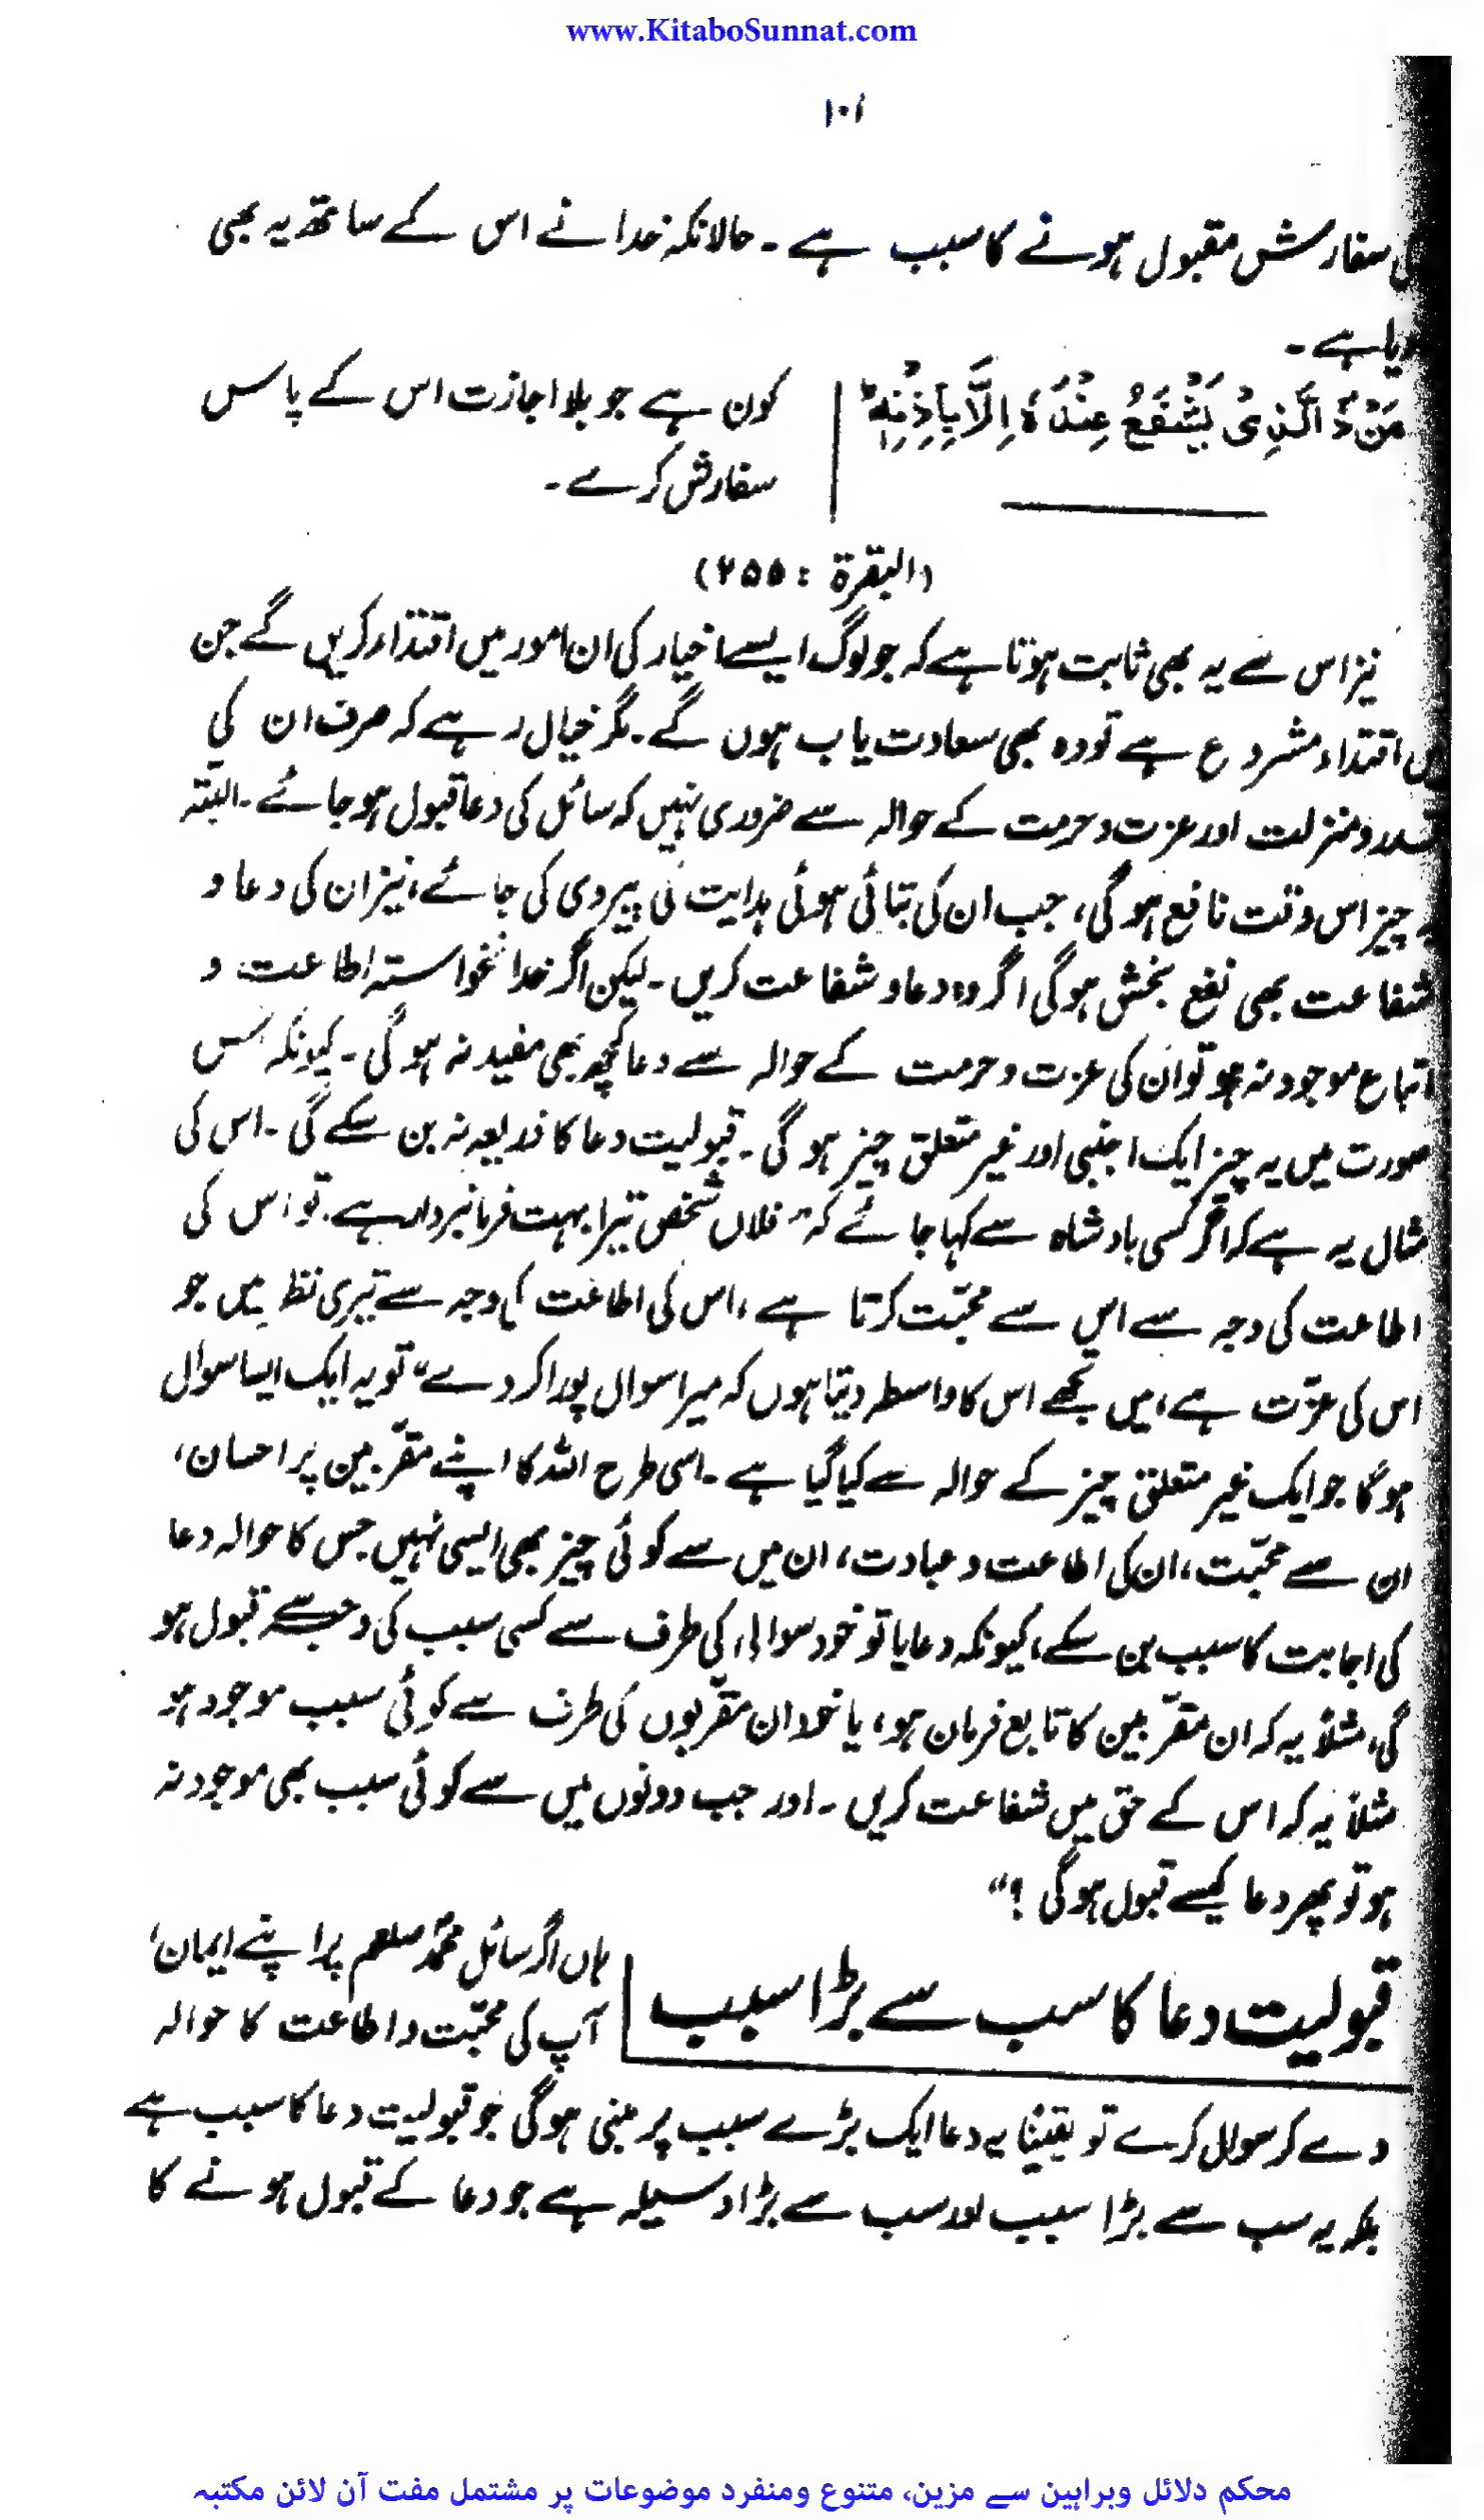 www.KitaboSunnat.com
۱۰۱
سفارش مقبول ہونے کا سبب ہے۔ حالانکہ خدا نے اس کے ساتھ یہ بھی
دیا ہے۔
مَنْ ذَا الَّذِیْ یَشْفَعُ عِنْدَہٗ اِلَّا بِاِذْنِہٖ ؕ
کون ہے جو بلا اجازت اس کے پاس
سفارش کرے۔
(البقرة : ۲۵۵)
نیز اس سے یہ بھی ثابت ہوتا ہے کہ جو لوگ ایسے اخیار کی ان امور میں اقتدار کریں گے جن
اقتداء مشروع ہے تو وہ بھی سعادت یاب ہوں گے۔ مگر خیال رہے کہ صرف ان کی
قدر و منزلت اور عزت و حرمت کے حوالہ سے ضروری نہیں کہ سائل کی دعا قبول ہو جائے۔ البتہ
چیز اس وقت نافع ہوگی، جب ان کی بتائی ہوئی ہدایت کی پیروی کی جائے، نیز ان کی دعا و
شفاعت بھی نفع بخش ہوگی اگر وہ دعا و شفاعت کریں۔ لیکن اگر خدانخواستہ اطاعت و
اتباع موجود نہ ہو تو ان کی عزت و حرمت کے حوالہ سے دعا کچھ بھی مفید نہ ہوگی۔ کیونکہ اس
صورت میں یہ چیز ایک اجنبی اور غیر متعلق چیز ہوگی۔ قبولیت دعا کا ذریعہ نہ بن سکے گی۔ اس کی
مثال یہ ہے کہ اگر کسی بادشاہ سے کہا جائے کہ "فلاں شخص تیرا بہت فرمانبردار ہے۔ تو اس کی
اطاعت کی وجہ سے اس سے محبّت کرتا ہے، اس کی اطاعت کی وجہ سے تیری نظر میں جو
اس کی عزّت ہے، میں تجھے اس کا واسطہ دیتا ہوں کہ میرا سوال پورا کر دے" تو یہ ایک ایسا سوال
ہوگا جو ایک غیر متعلق چیز کے حوالہ سے کیا گیا ہے۔ اسی طرح اللہ کا اپنے مقرّبین پر احسان،
ان سے محبّت، ان کی اطاعت و عبادت، ان میں سے کوئی چیز بھی ایسی نہیں جس کا حوالہ دعا
کی اجابت کا سبب بن سکے، کیونکہ دعا یا تو خود سوالی کی طرف سے کسی سبب کی وجہ سے قبول ہو
گی، مثلاً یہ کہ ان مقرّبین کا تابع فرمان ہو، یا خود ان مقرّبوں کی طرف سے کوئی سبب موجود ہو
مثلاً یہ کہ اس کے حق میں شفاعت کریں۔ اور جب دونوں میں سے کوئی سبب بھی موجود نہ
ہو تو پھر دعا کیسے قبول ہوگی ؟"
قبولیت دعا کا سب سے بڑا سبب
ہاں اگر سائل محمّد صلعم پر اپنے ایمان،
آپ کی محبّت و اطاعت کا حوالہ
دے کر سوال کرے تو یقیناً یہ دعا ایک بڑے سبب پر مبنی ہوگی جو قبولیت دعا کا سبب ہے
بلکہ یہ سب سے بڑا سبب اور سب سے بڑا وسیلہ ہے جو دعا کے قبول ہونے کا
محکم دلائل وبراہین سے مزین، متنوع ومنفرد موضوعات پر مشتمل مفت آن لائن مکتبہ